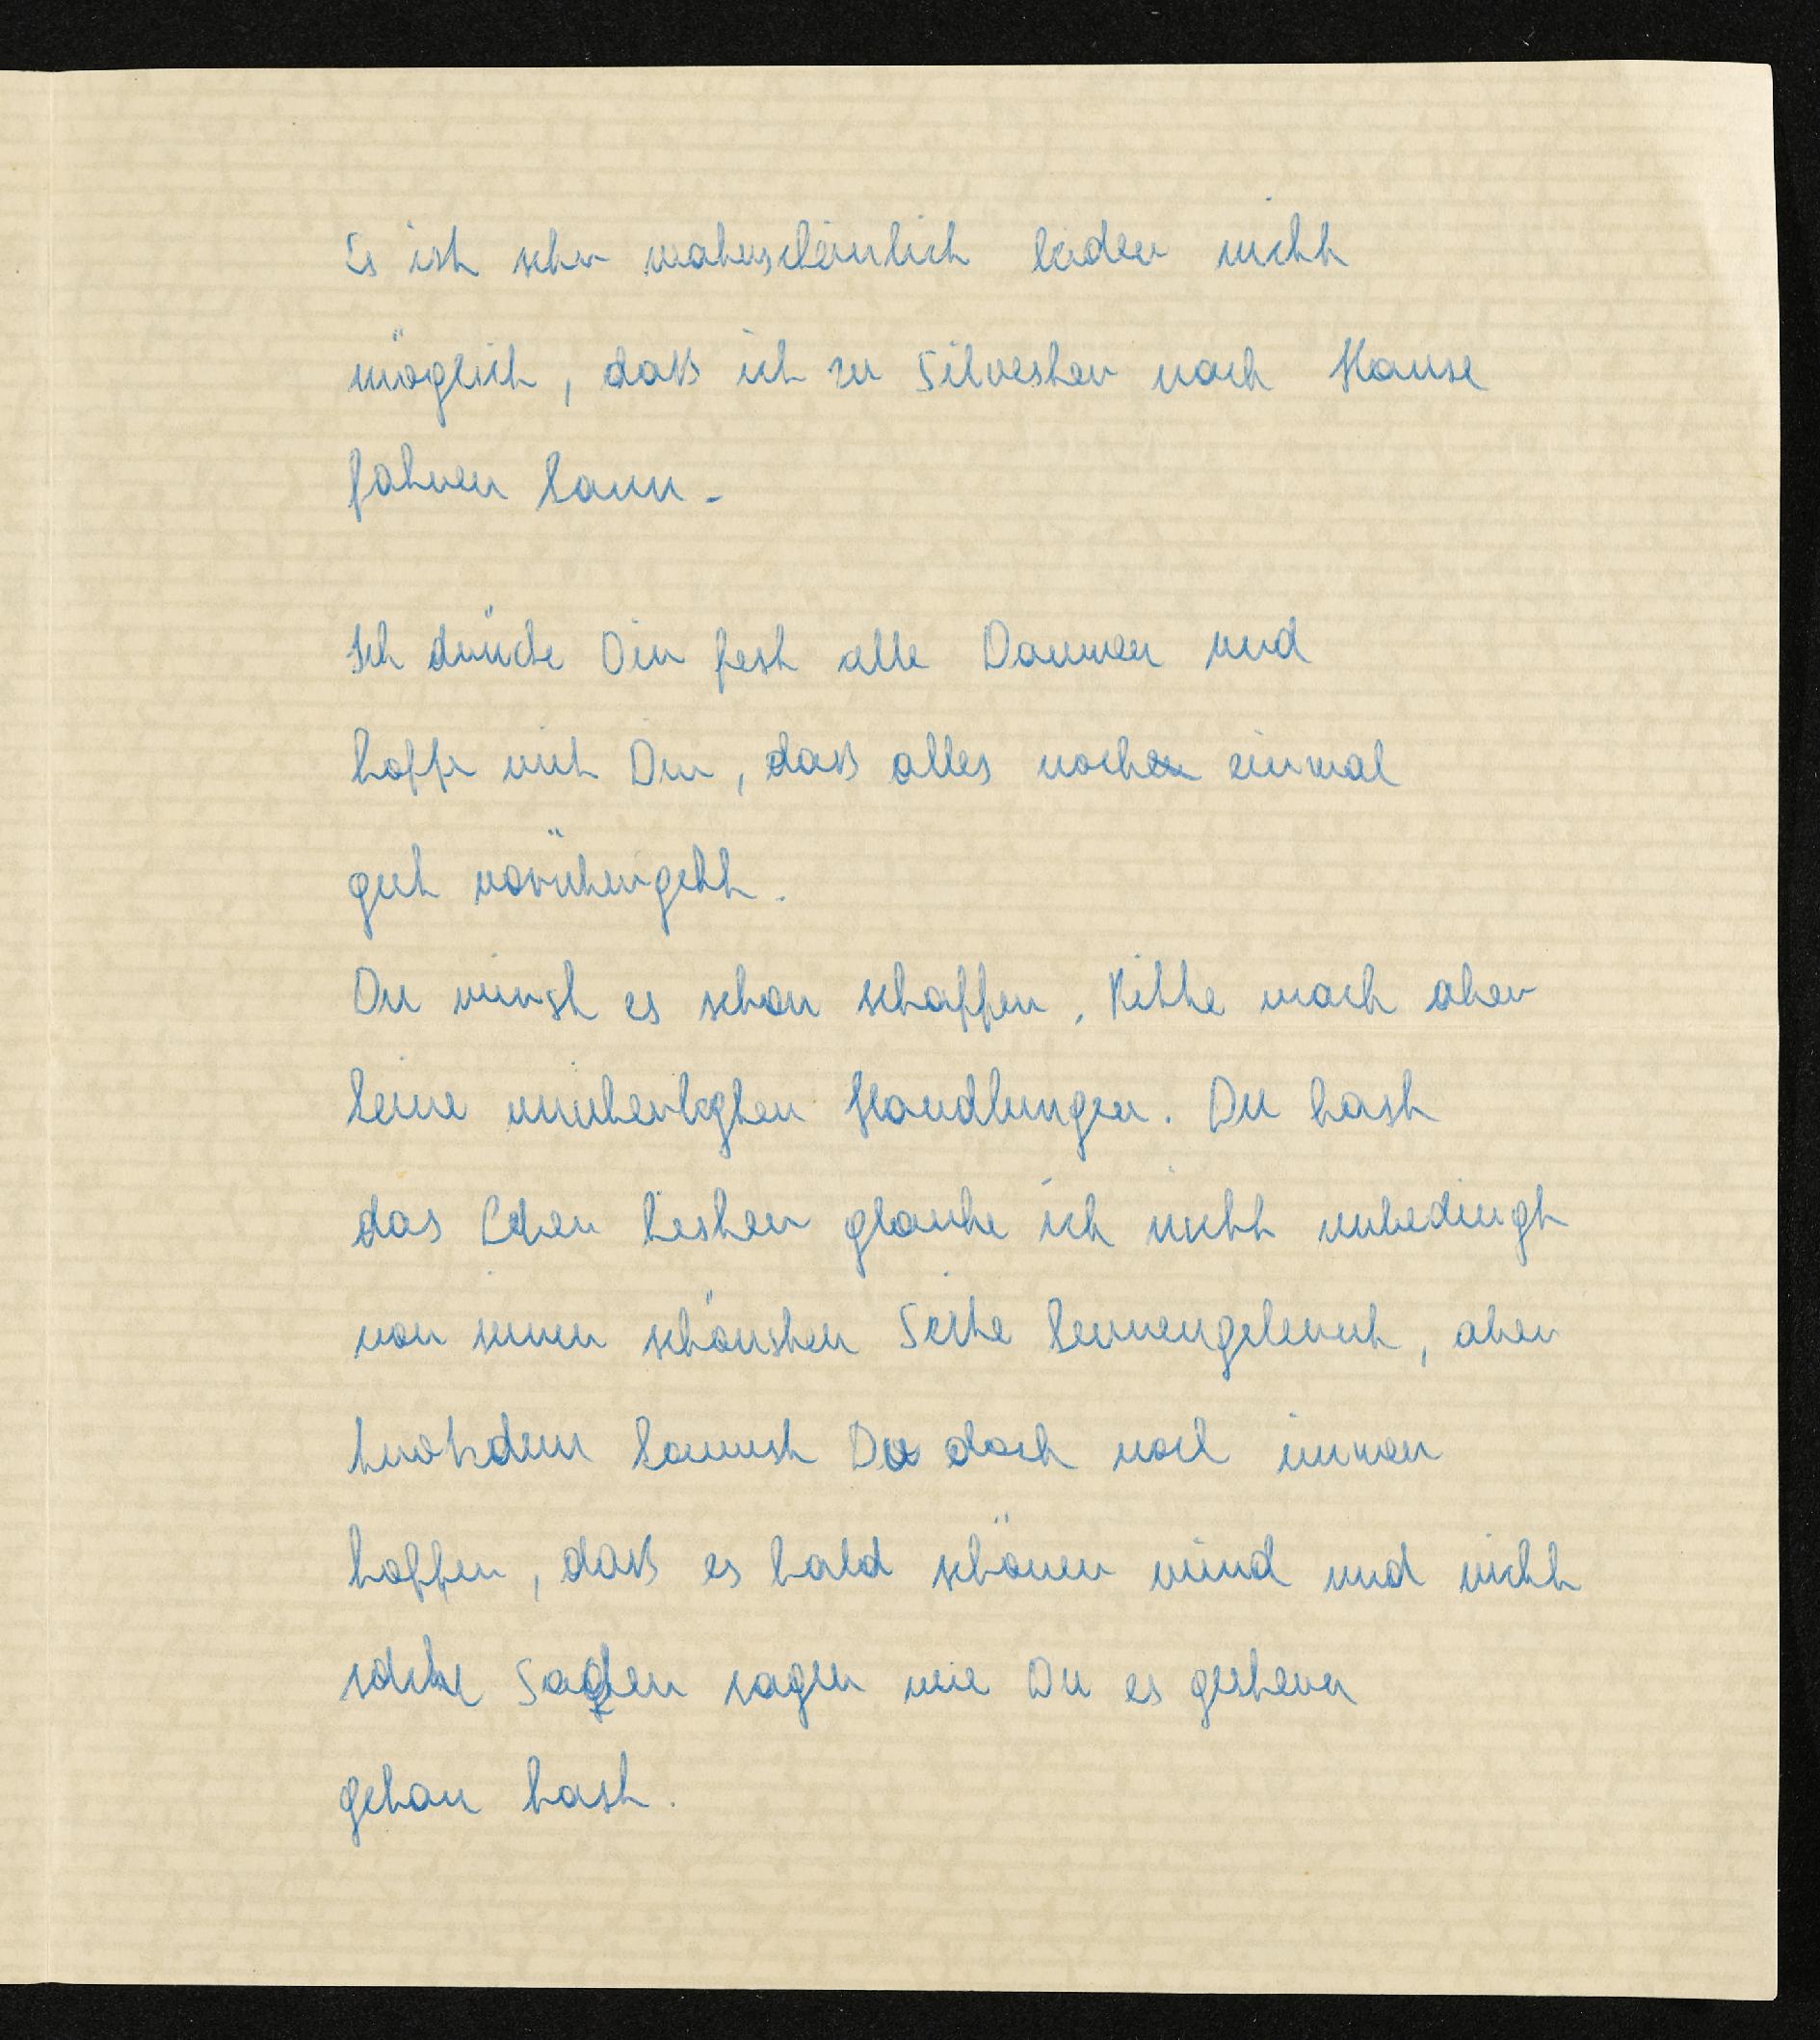 Es ist sehr wahrscheinlich leider nicht
möglich, daß ich zu Silvester nach Hause
fahren kann.
Ich drücke Dir fest alle Daumen und
hoffe mit Dir, daß alles noch einmal
gut vorübergeht.
Du wirst es schon schaffen. Bitte mach aber
keine unüberlegten Handlungen. Du hast
das Leben bisher glaube ich nicht unbedingt
von seiner schönsten Seite kennengelernt, aber
trotzdem kannst Du doch noch immer
hoffen, daß es bald schöner wird und nicht
solche Sachen sagen wie Du es gestern
getan hast.